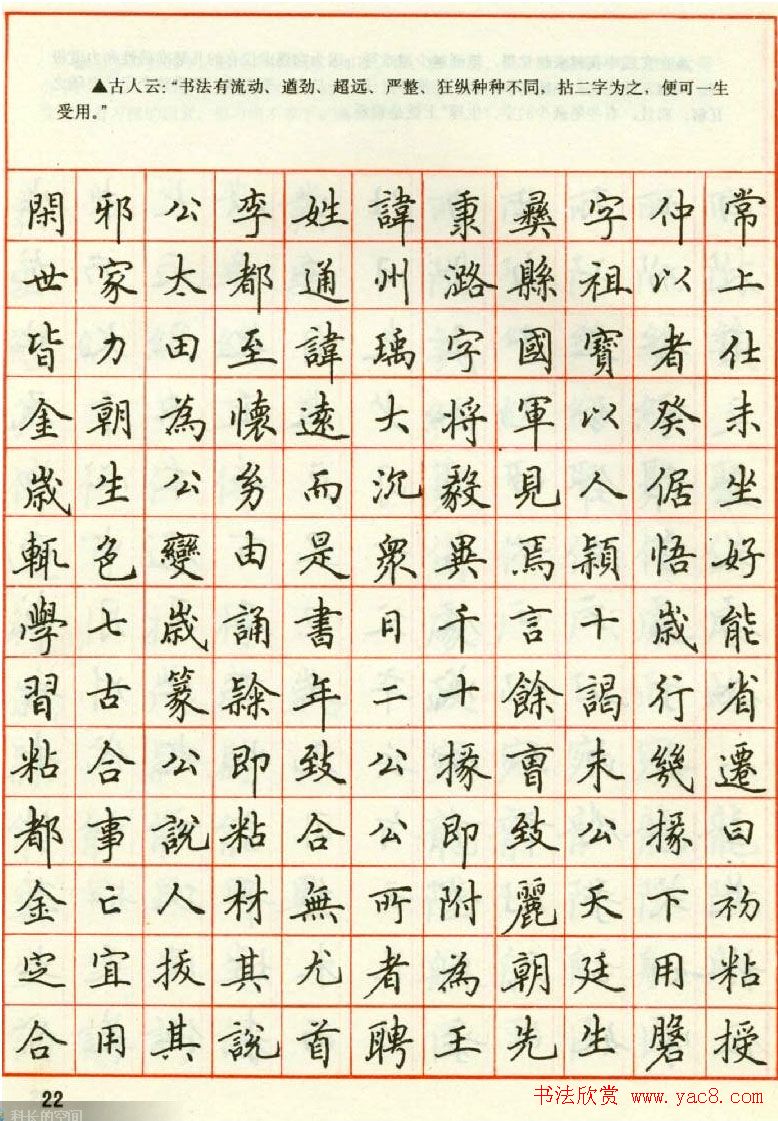 ▲古人云：“书法有流动、遒劲、超远、严整、狂纵种种不同，拈二字为之，便可一生
受用。”
閑邪公李姓諱秉彝字仲常
世家太都通州潞縣祖以上
皆力田至諱瑀字國寶者仕
金朝為懷遠大将軍以癸未
歲生公幼而沉毅見人倨坐
輒色變由是衆異焉穎悟好
學七歲誦書日千言十歲能
習古篆隸年二十餘謁行省
粘合公即致公掾會未幾遷
都事說粘合公即致公掾曰
金亡人材無所附麗天下初
定宜拔其尤者為朝廷用粘
合用其說首聘王先生磐授
22
科长的空间
书法欣赏 www.yac8.com